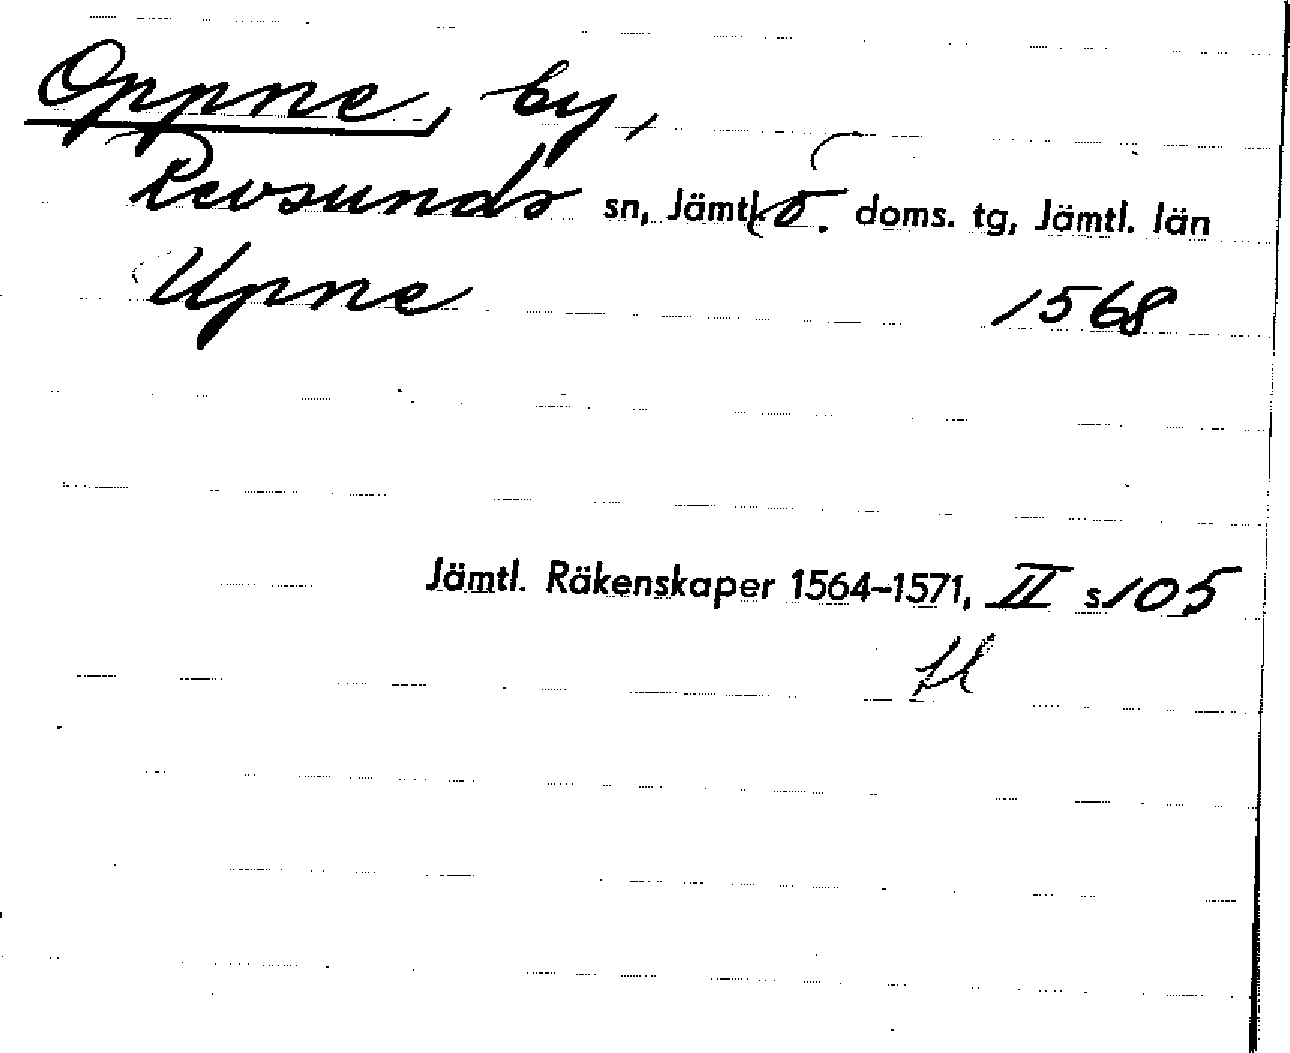 Oppne, by,
Revsunds sn, Jämtl. ö. doms. tg, Jämtl. län
Upne 1568
Jämtl. Räkenskaper 1564–1571, II s 105